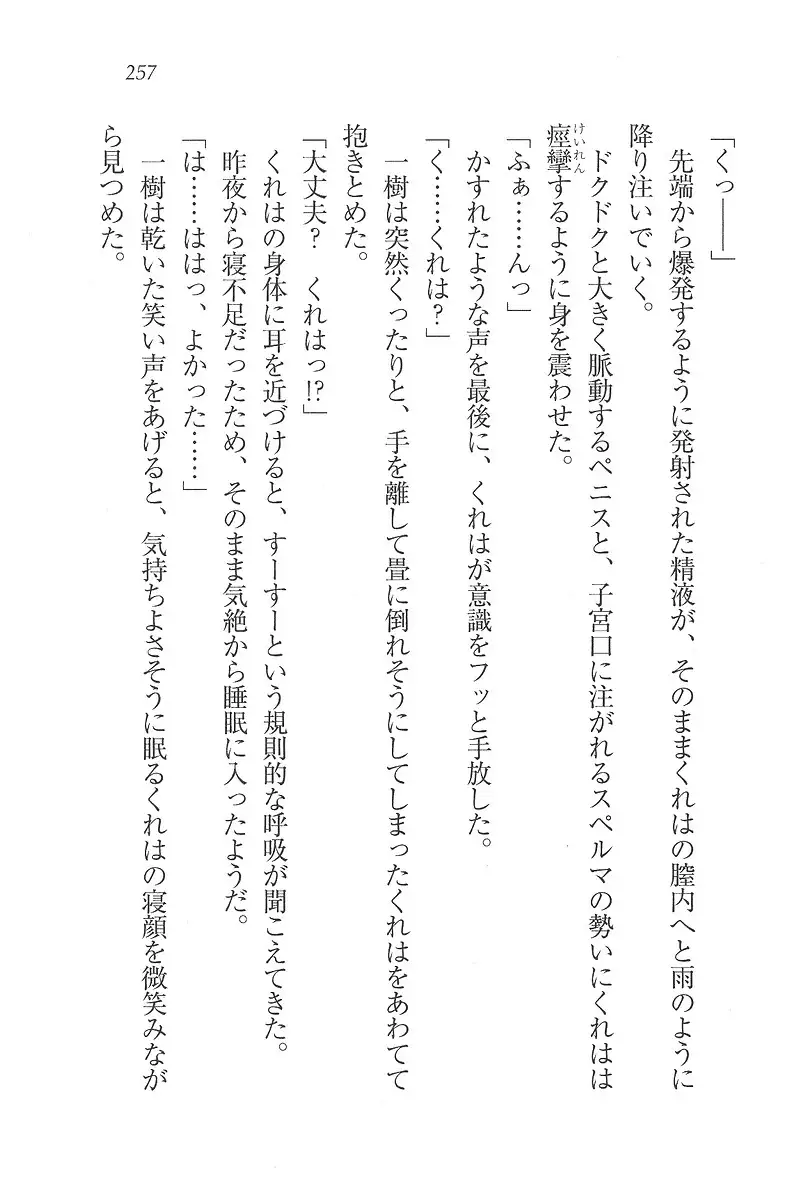 257
「くっ――」
　先端から爆発するように発射された精液が、そのままくれはの膣内へと雨のように
降り注いでいく。
　ドクドクと大きく脈動するペニスと、子宮口に注がれるスペルマの勢いにくれはは
痙攣するように身を震わせた。
けいれん
「ふぁ……んっ」
　かすれたような声を最後に、くれはが意識をフッと手放した。
「く……くれは？」
　一樹は突然くったりと、手を離して畳に倒れそうにしてしまったくれはをあわてて
抱きとめた。
「大丈夫？　くれはっ!?」
　くれはの身体に耳を近づけると、すーすーという規則的な呼吸が聞こえてきた。
　昨夜から寝不足だったため、そのまま気絶から睡眠に入ったようだ。
「は……ははっ、よかった……」
　一樹は乾いた笑い声をあげると、気持ちよさそうに眠るくれはの寝顔を微笑みなが
ら見つめた。